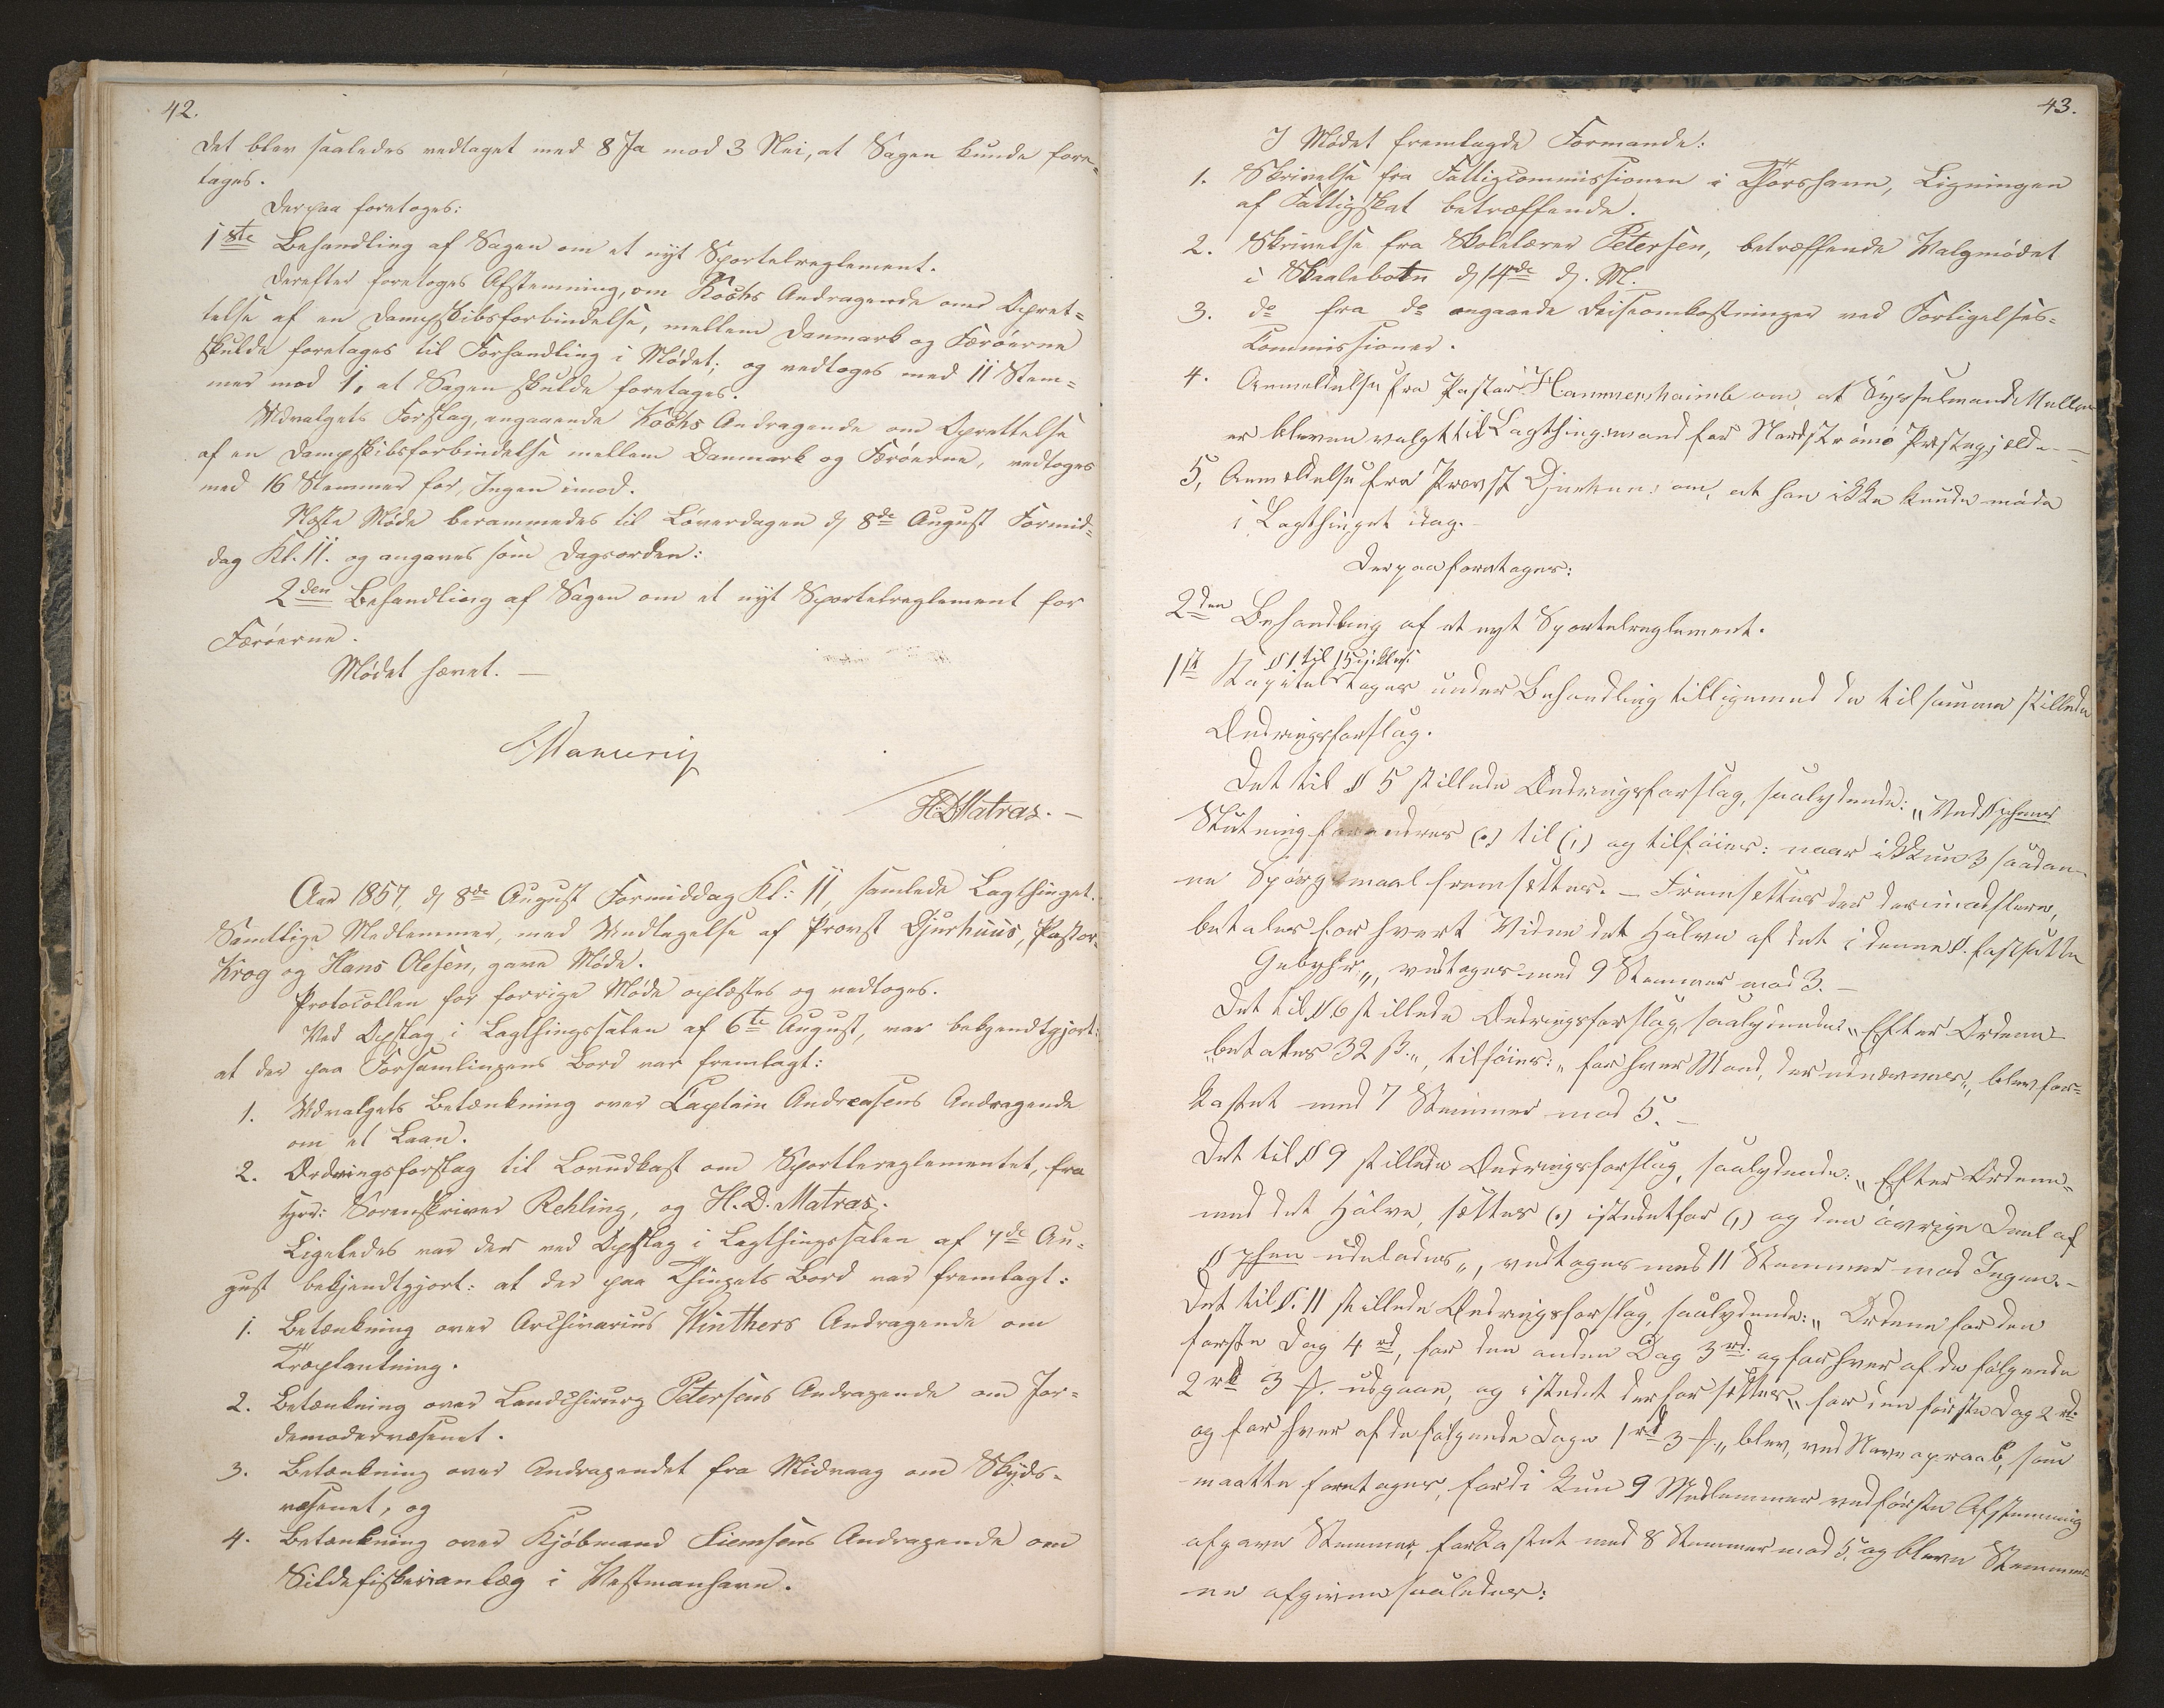 42.
Det blev saaledes vedtaget med 8 Ja mod 3 Nei, at Sagen kunde fore-
tages.
Derpaa foretoges:
1ste Behandling af Sagen om et nyt Sportelreglement.
Derefter foretoges Afstemning, om Kochs Andragende om Opret=
telse af en Dampskibsforbindelse, mellem Danmark og Færöerne
skulde foretages til Forhandling i Mødet; og vedtoges med 11 Stem=
mer mod 1, at Sagen skulde foretages.
Udvalgets Forslag, angaaende Kochs Andragende om Oprettelse
af en Dampskibsforbindelse mellem Danmark og Færöerne, vedtoges
med 16 Stemmer for, Ingen imod.
Næste Møde berammedes til Löverdagen d. 8de August Formid=
dag Kl. 11. og angaves som Dagsorden:
2den Behandling af Sagen om et nyt Sportelreglement for
Færöerne.
Mødet hævet. —
H. D. Matras. —
Aar 1857, d. 8de August Formiddag Kl: 11, samlede Lagthinget.
Samtlige Medlemmer, med Undtagelse af Provst Djurhuus, Pastor
Krog og Hans Olesen, gave Møde.
Protocollen for forrige Møde oplæstes og vedtoges.
Ved Opslag i Lagthingssalen af 6te August, var bekjendtgjort:
at der paa Forsamlingens Bord var fremlagt:
1. Udvalgets Betænkning over Captain Andreasens Andragende
om et Laan.
2. Ændringsforslag til Lovudkast om Sportlereglementet, fra
Hrr: Sorenskriver Rehling, og H. D. Matras.
Ligeledes var der ved Opslag i Lagthingssalen af 7de Au=
gust bekjendtgjort: at der paa Thingets Bord var fremlagt:
1. Betænkning over Archivarius Winthers Andragende om
Træplantning.
2. Betænkning over Landchirurg Petersens Andragende om Jor=
demodervæsenet.
3. Betænkning over Andragendet fra Midvaag om Skyds=
væsenet, og
4. Betænkning over Kjöbmand Siemsens Andragende om
Sildefiskerianlæg i Vestmanhavn.
43.
I Mødet fremlagde Formande:
1. Skrivelse fra Fattigcommissionen i Thorshavn, Ligningen
af Fattigskat betræffende.
2. Skrivelse fra Skolelærer Petersen, betræffende Valgmödet
i Skaalebotn d. 14de d. M.
3. do fra do angaaende Reiseomkostninger ved Forligelses=
Commissioner.
4. Anmeldelse fra Pastor Hammershaimb om, at Sysselmand Müller
er bleven valgt til Lagthingsmand for Nordströmö Præstegjeld. —
5, Anmeldelse fra Provst Djurhuus om, at han ikke kunde møde
i Lagthinget idag. —
Derpaa foretoges:
2den Behandling af et nyt Sportelreglement.
§ 1 til 15 inklus.
1ste Kapitel toges under Behandling tilligemed de til samme stillede
Ændringsforslag.
Det til § 5 stillede Ændringsforslag, saalydende: „Ved §phens
Slutning forandres (.) til (;) og tilföies: naar ikkun 3 saadan-
ne Spörgsmaal fremsættes. — Fremsættes der derimod flere,
betales for hvert Vidne det Halve af det i denne §. fastsatte
Gebyhr„, vedtoges med 9 Stemmer mod 3. —
Det til § 6 stillede Ændringsforslag, saalydende: „Efter Ordene
„betales 32 ß.„ tilföies: „for hver Mand, der udnævnes„, blev for=
kastet med 7 Stemmer mod 5. —
Det til § 9 stillede Ændringsforslag, saalydende: „Efter Ordene=
med det Halve, sættes (.) istedetfor (,) og den övrige Deel af
§phen udelades„, vedtoges med 11 Stemmer mod Ingen. —
Det til §. 11 stillede Ændringsforslag, saalydende: „Ordene for den
förste Dag 4 rd, for den anden Dag 3 rd. og for hver af de fölgende
2 rd 3 ꝭ. udgaae, og istedet derfor sættes„ for den förste Dag 2 rd.
og for hver af de fölgende Dage 1 rd 3 ꝭ„ blev, ved Navneopraab, som
maatte foretages, fordi kun 9 Medlemmer ved förste Afstemning
afgave Stemmer, forkastet med 8 Stemmer mod 5. og bleve Stemmer-
ne afgivne saaledes: